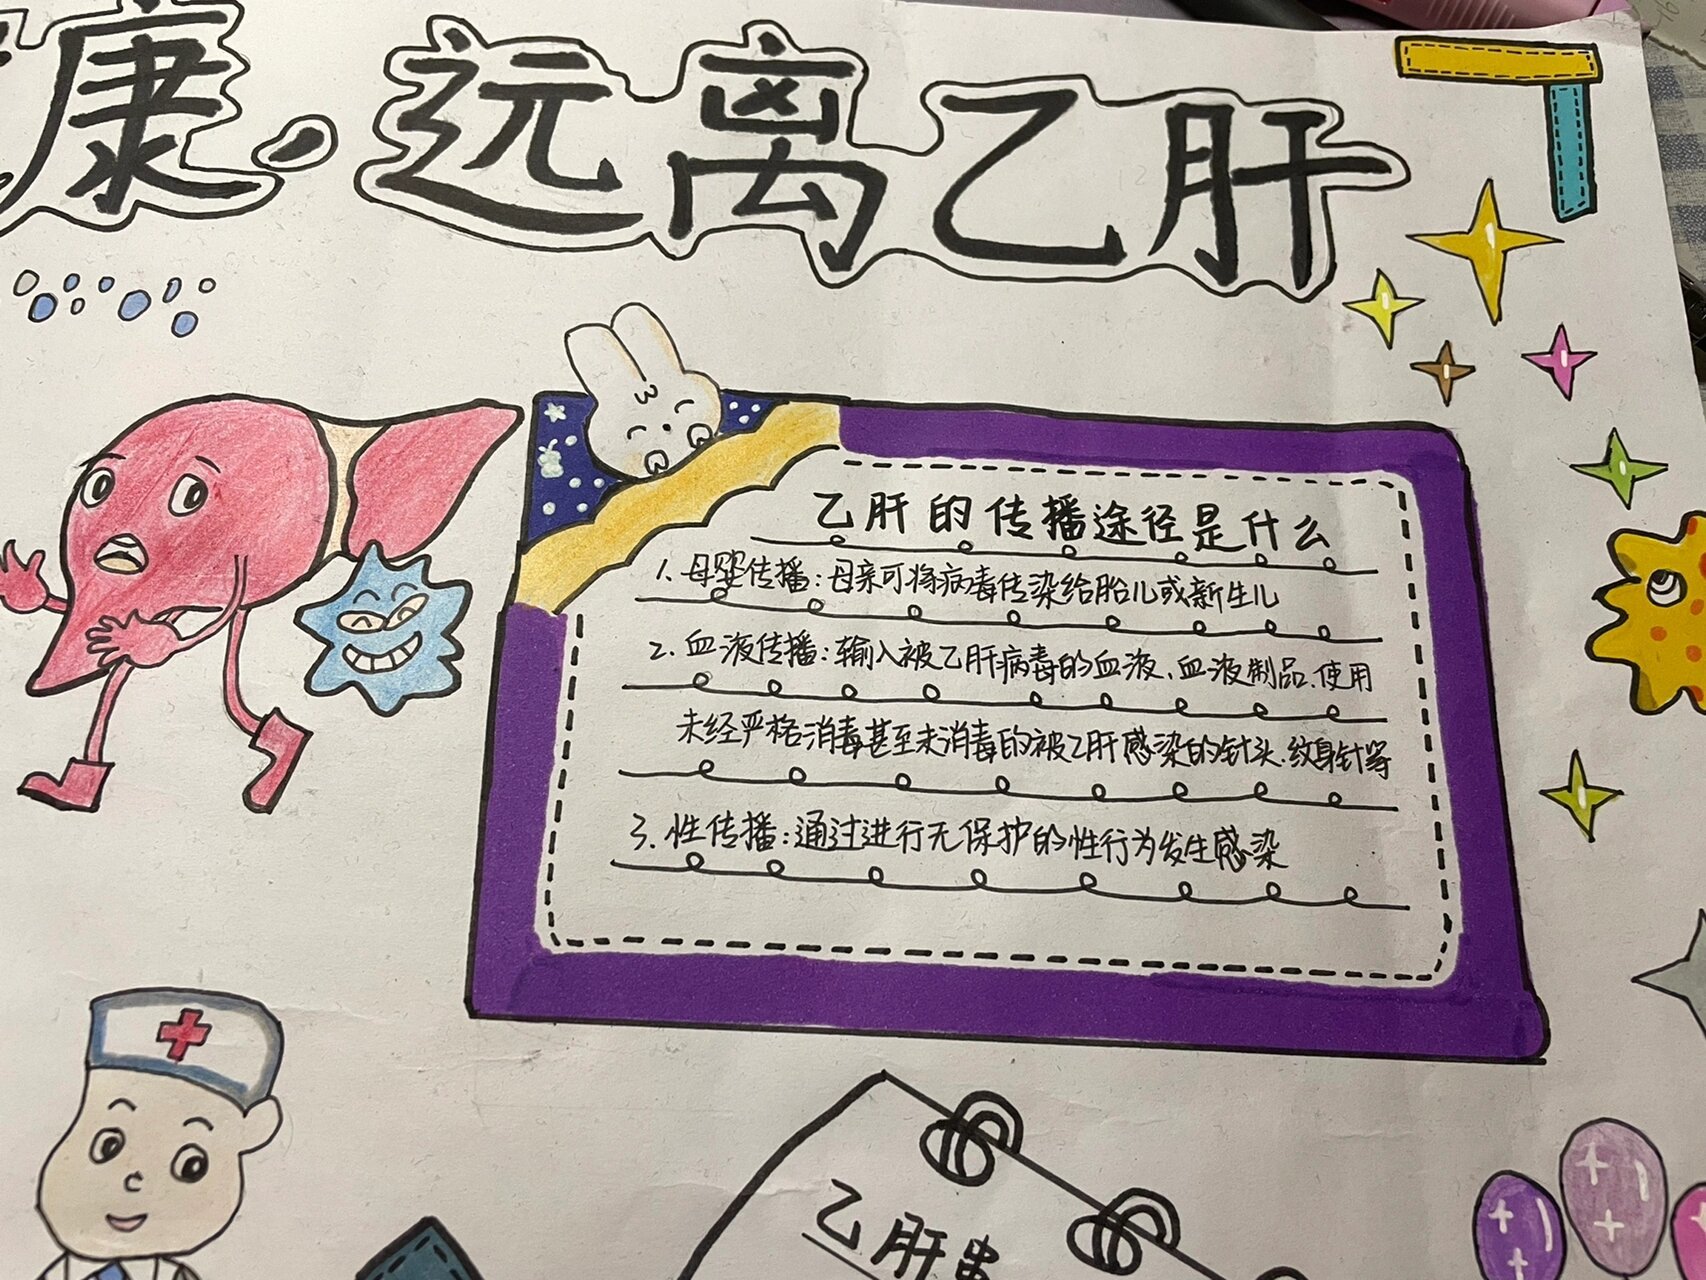 康，远离乙肝
乙肝的传播途径是什么
1.母婴传播：母亲可将病毒传染给胎儿或新生儿
2.血液传播：输入被乙肝病毒的血液、血液制品、使用
未经严格消毒甚至未消毒的被乙肝感染的针头、纹身针等
3.性传播：通过进行无保护的性行为发生感染
乙肝